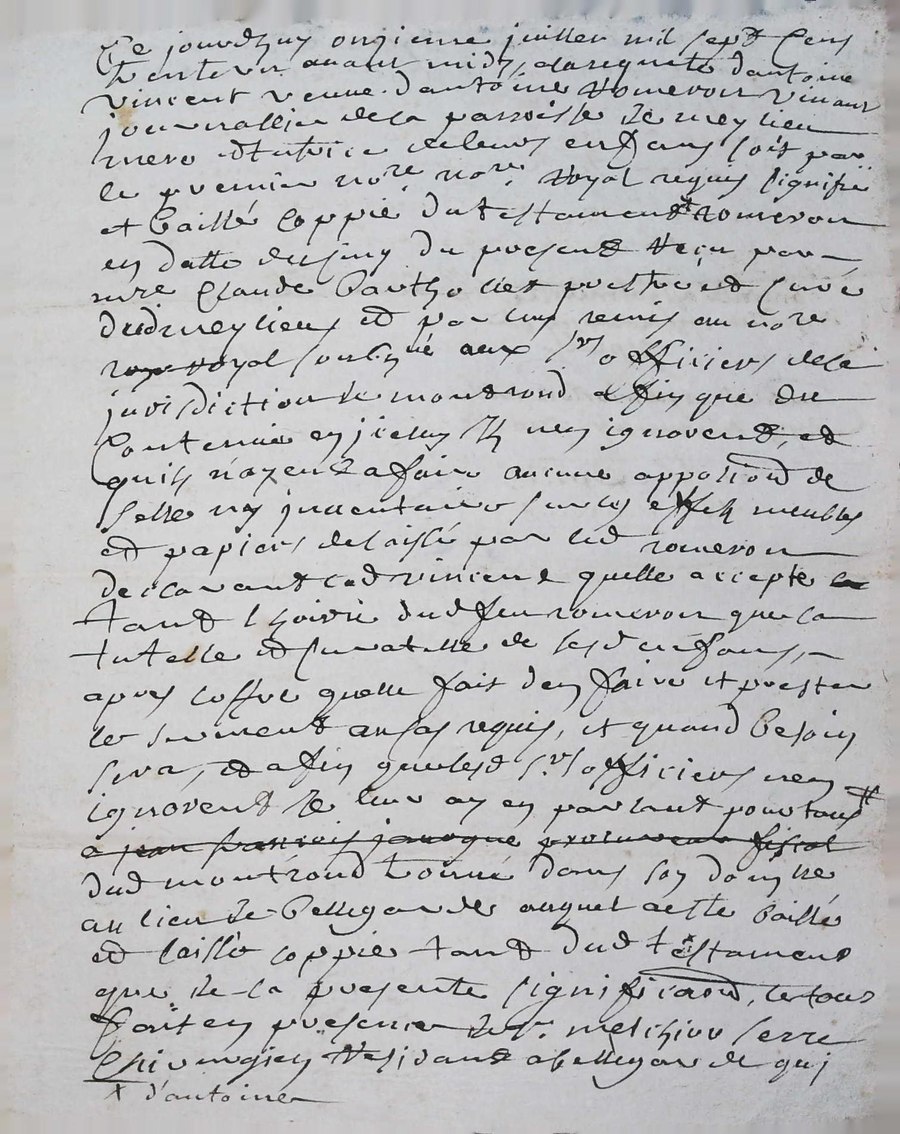 Ce jourdhuy onzieme juillet mil sept Cens
trente un avant midy, a la requete dantoine
vincent veuve dantoine Romeron vivant
journallier de la parroisse de meylieu
mere et tutrice de leurs enfans soit par
le premier nore royal requis signifié
et baillé coppie du testament + romeron
en datte du juin du present Reçu par
mre Claude Barthollet prestre et curé
dud meylieu et par luy remis au nore
royal soubzné aux srs officiers de la
jurisdiction de montrond affin que du
Contenu en jceluy Ilz nen ignorent, et
quils n'ayent a faire aucune apposiôn de
selle ny jnventaire sur les effetz meubles
et papiers delaissé par led romeron
declarant lad vincent quelle accepte
tant lhoirie dud feu romeron que la
tutelle et curatelle de sesd enfans,
apres loffre quelle fait den faire et prester
le serment au cas requis, et quand besoin
sera, et afin que lesd srs officiers nen
ignorent Je leur ay en parlant pour tous #
a jean francois jamogue procureur fiscal
dud montrond trouvé dans son domjlle
au lieu de Bellegarde auquel a este baillé
et laissé coppie tant dud testament
que de la presente signifficaôn, le tous
fait en presence de sr. melchior serre
Chirurgien Residant a bellegarde qui
+ d'antoine